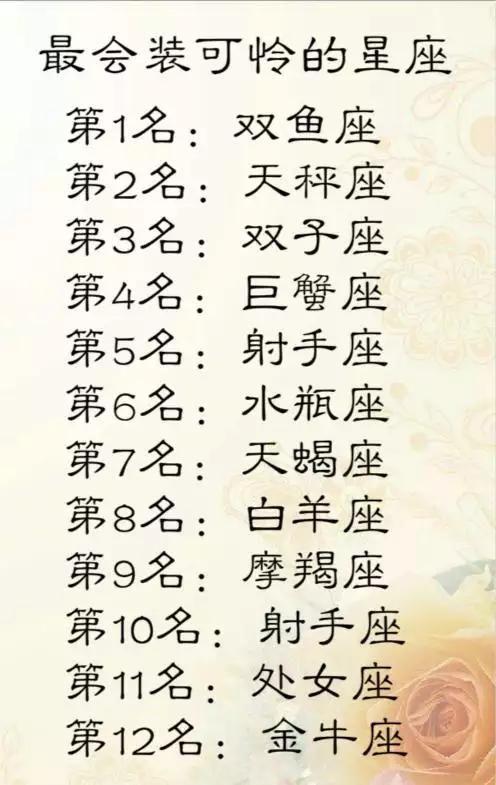 最会装可怜的星座
第1名：双鱼座
第2名：天秤座
第3名：双子座
第4名：巨蟹座
第5名：射手座
第6名：水瓶座
第7名：天蝎座
第8名：白羊座
第9名：摩羯座
第10名：射手座
第11名：处女座
第12名：金牛座